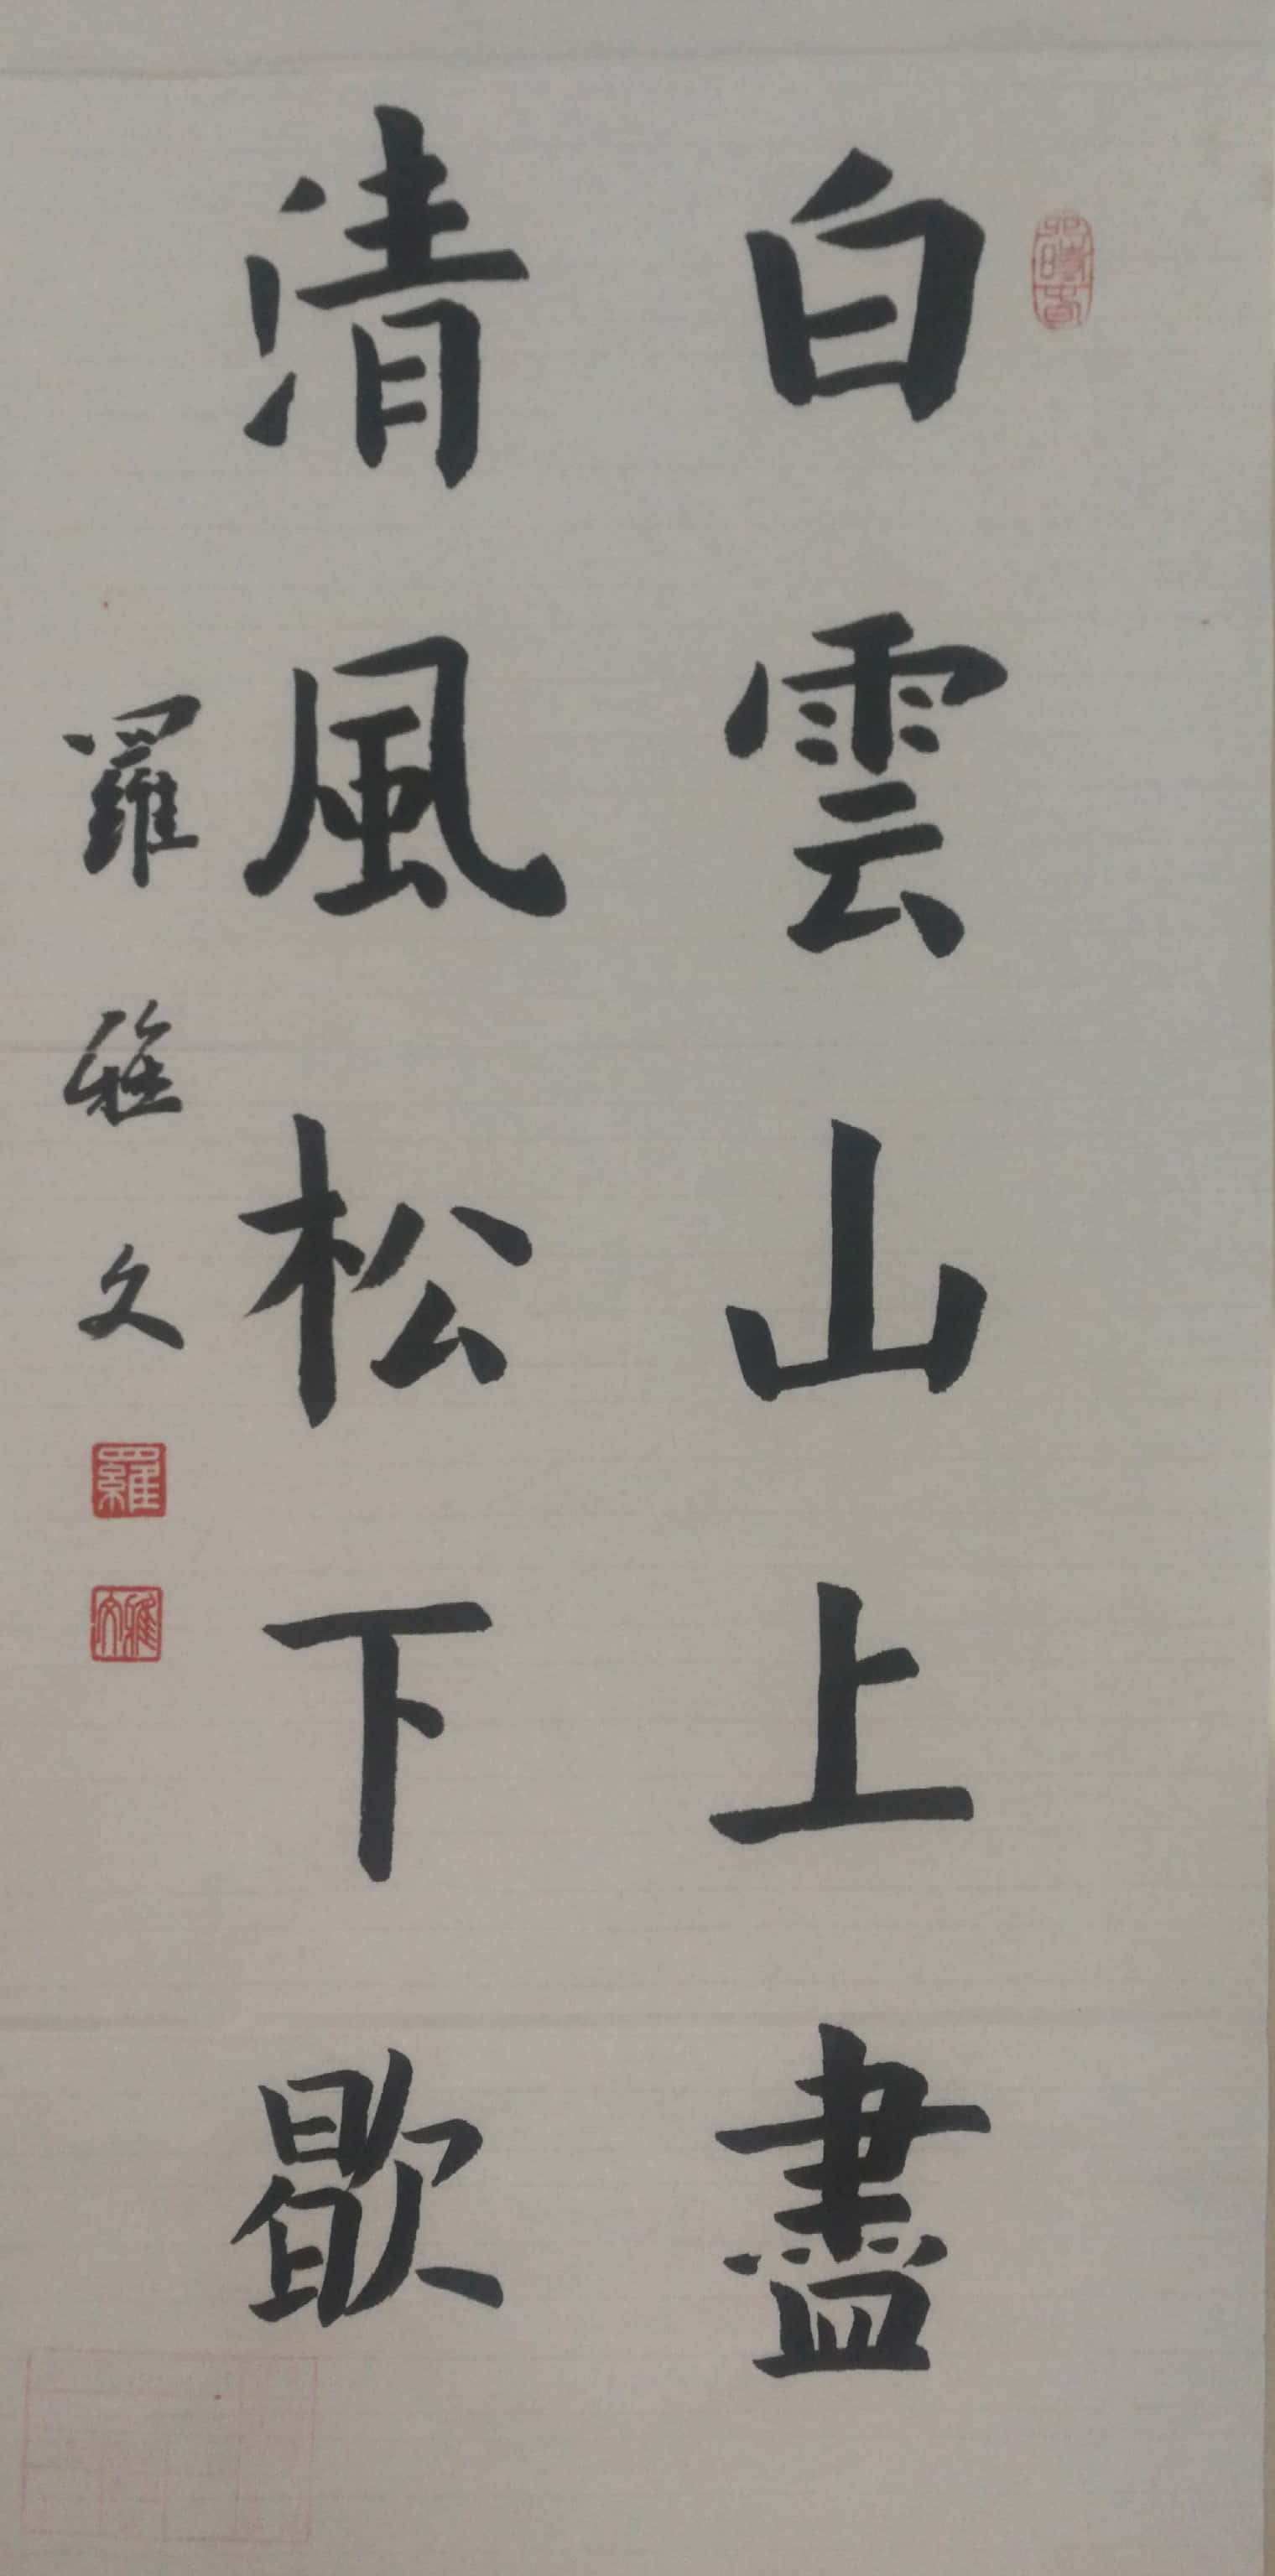 白雲山上盡
清風松下歇
羅雅文
羅
雅文